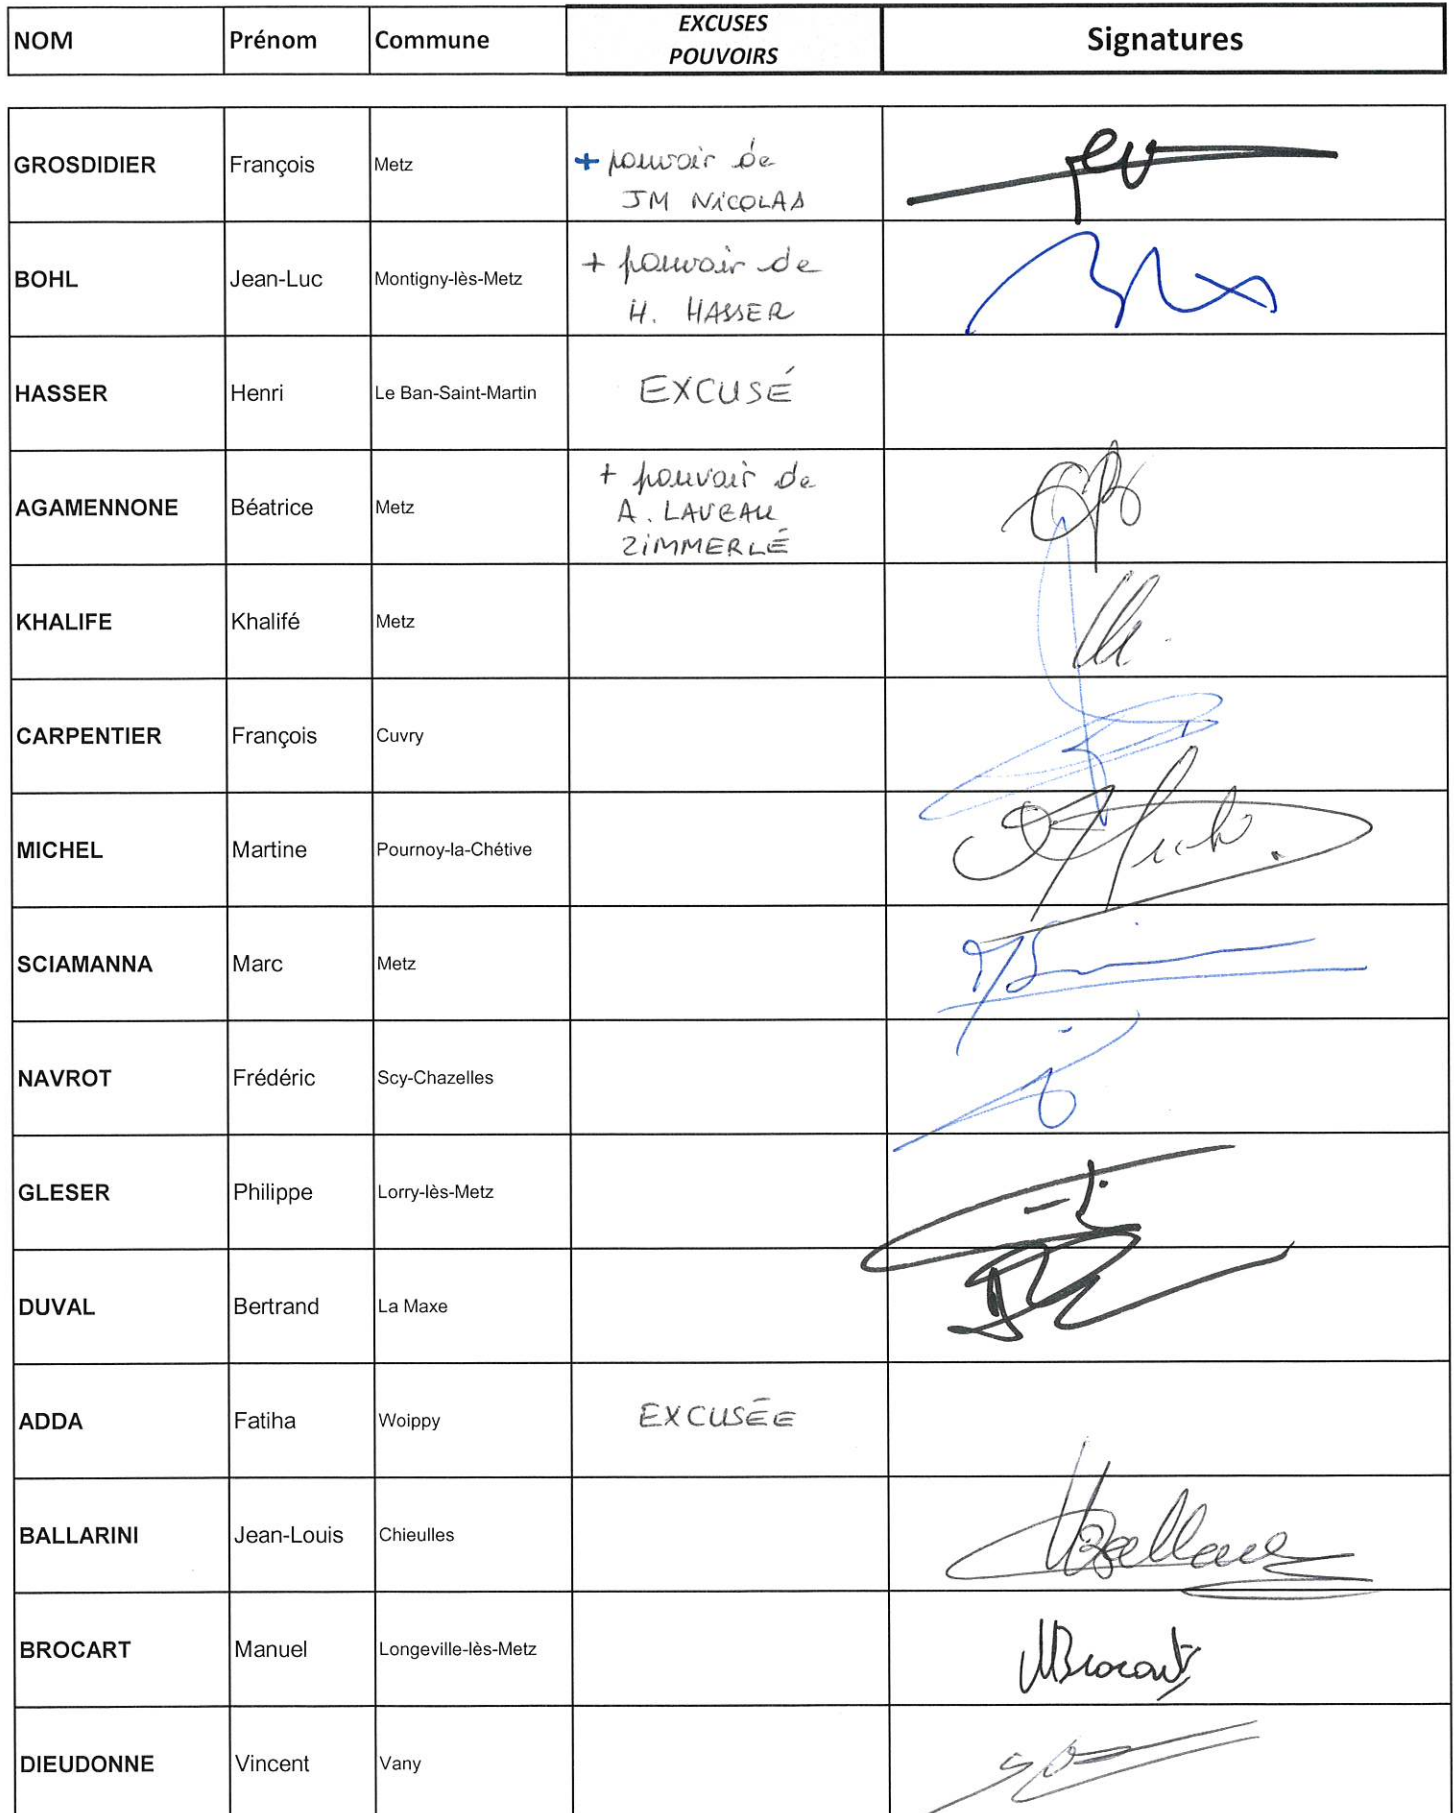 NOM Prénom Commune EXCUSES Signatures
POUVOIRS
GROSDIDIER François Metz + pouvoir de
JM NICOLAS
BOHL Jean-Luc Montigny-lès-Metz + pouvoir de
H. HASSER
HASSER Henri Le Ban-Saint-Martin EXCUSÉ
AGAMENNONE Béatrice Metz + pouvoir de
A. LAVEAU
ZIMMERLÉ
KHALIFE Khalifé Metz
CARPENTIER François Cuvry
MICHEL Martine Pournoy-la-Chétive
SCIAMANNA Marc Metz
NAVROT Frédéric Scy-Chazelles
GLESER Philippe Lorry-lès-Metz
DUVAL Bertrand La Maxe
ADDA Fatiha Woippy EXCUSÉE
BALLARINI Jean-Louis Chieulles
BROCART Manuel Longeville-lès-Metz MBrocart
DIEUDONNE Vincent Vany